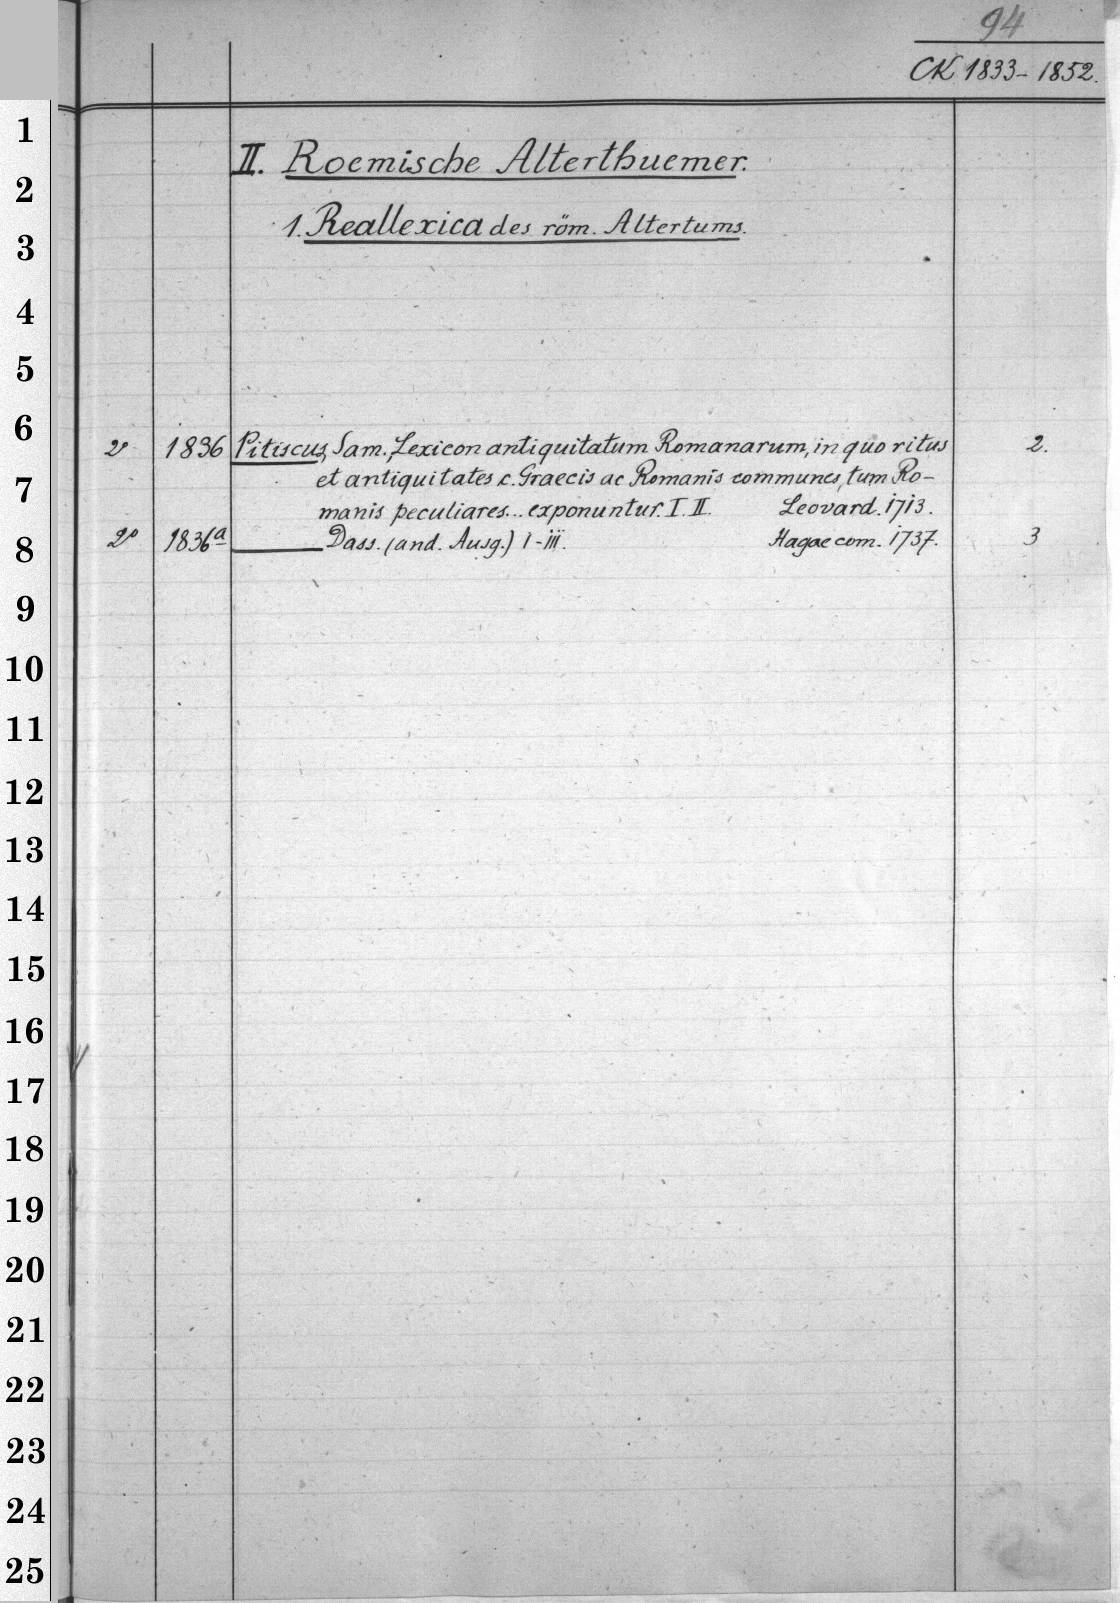 94
CK 1833-1852.
1
II. Roemische Alterthuemer.
2
1. Reallexica des röm. Altertums.
3
4
5
6
2° 1836 Pitiscus, Sam., Lexicon antiquitatum Romanarum, in quo ritus 2.
et antiquitates c. Graecis ac Romanis communes, tum Ro-
7
manis peculiares... exponuntur. I. II. Leovard. 1713.
8
2° 1836a ——— Dass. (and. Ausg.) I-III. Hagae com. 1737. 3
9
10
11
12
13
14
15
16
17
18
19
20
21
22
23
24
25